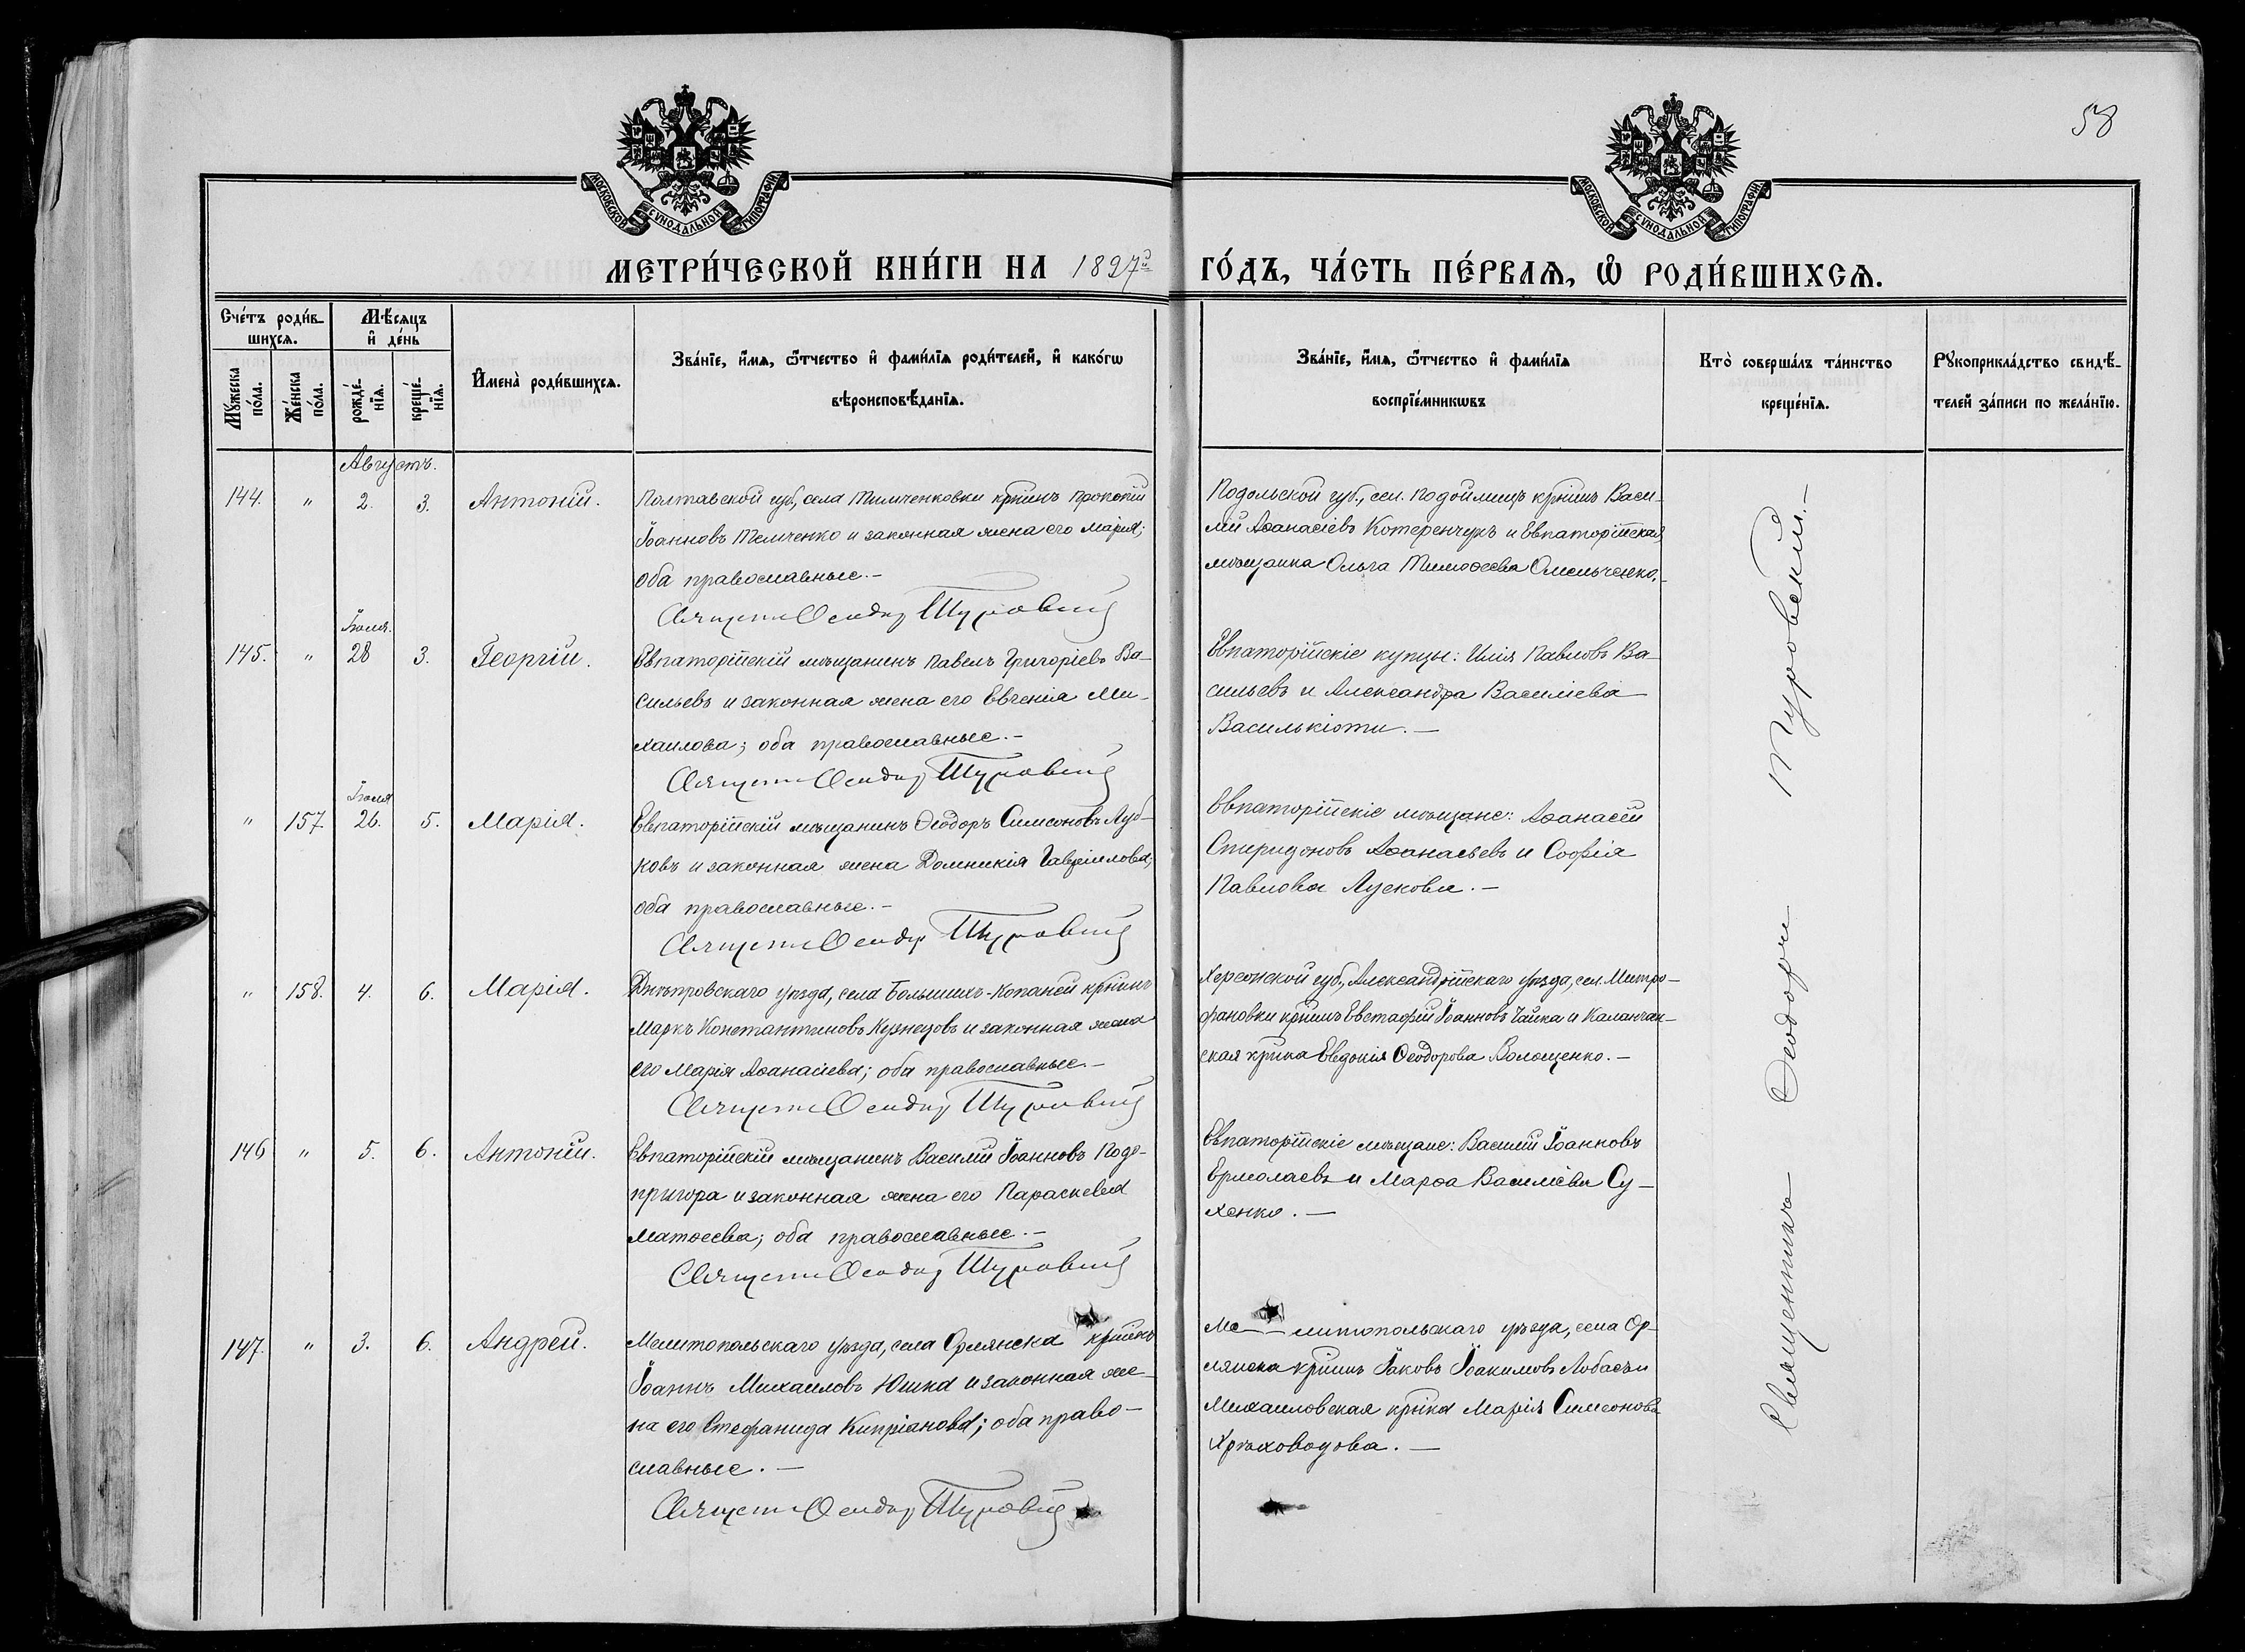 58
МОСКОВСКОЙ СУНОДАЛЬНОЙ ТИПОГРАФІИ
МОСКОВСКОЙ СУНОДАЛЬНОЙ ТИПОГРАФІИ
МЕТРИ́ЧЕСКОЙ КНИ́ГИ НА 1897й ГО́ДЪ, ЧА́СТЬ ПЕ́РВАЯ, Ѡ РОДИ́ВШИХСЯ.
Сче́тъ роди́в-
шихся.
Мѣ́сяцъ
и де́нь
Му́жеска
по́ла.
Же́нска
по́ла.
рожде́-
нїя.
креще́-
нїя.
Имена̀ роди́вшихся.
Зва́нїе, и́мя, ѻ́тчество и фами́лїя роди́телей, и како́гѡ
вѣроисповѣ́данїя.
Зва́нїе, и́мя, ѻ́тчество и фами́лїя
воспрїе́мникѡвъ
Кто̀ соверша́лъ та́инство
креще́нїя.
Рꙋкоприкла́дство свидѣ́-
телей за́писи по жела́нїю.
Августъ.
144. " 2. 3. Антоній.
Полтавской губ., села кр̄нинъ Прокопій
Іоанновъ и законная жена его Марія;
оба православные.-
Священ Ѳеодор Туровскій
Подольской губ., сел. Подоймицъ кр̄нинъ Васи-
лій Аѳанасіевъ Котеренчукъ и Евпаторійская
мѣщанка Ольга Тимоѳеева Омельченко.-
Іюля.
145. " 28 3. Георгій.
Евпаторійскій мѣщанинъ Павелъ Григоріевъ Ва-
сильевъ и законная жена его Евгенія Ми-
хаилова; оба православные.-
Священ Ѳеодор Туровскій
Евпаторійскіе купцы: Илія Павловъ Ва-
сильевъ и Александра Василіева
Василькіоти.-
Іюля
" 157 26. 5. Марія.
Евпаторійскій мѣщанинъ Ѳеодоръ Симеоновъ Луб-
ковъ и законная жена Домникія Гавріилова;
оба православные.-
Священ Ѳеодор Туровскій
Евпаторійскіе мѣщане: Аѳанасій
Спиридоновъ Аѳанасьевъ и Софія
Павлова Лускова.-
" 158. 4. 6. Марія.
Днѣпровскаго уѣзда, села Большихъ-Копаней кр̄нинъ
Маркъ Константиновъ Кузнецовъ и законная жена
его Марія Аѳанасіева; оба православные.-
Священ Ѳеодор Туровскій
Херсонской губ., Александрійскаго уѣзда, сел. Митро-
фановки кр̄нинъ Евстафій Іоанновъ Чайка и Каланчак-
ская кр̄нка Евдокія Ѳеодорова Волощенко.-
146 " 5. 6. Антоній.
Евпаторійскій мѣщанинъ Василій Іоанновъ Подо-
пригора и законная жена его Параскева
Матѳеева; оба православные.-
Священ Ѳеодор Туровскій
Евпаторійскіе мѣщане: Василій Іоанновъ
Ермолаевъ и Марѳа Василіева Су-
хенко.-
147. " 3. 6. Андрей.
Мелитопольскаго уѣзда, села Орлянска кр̄нинъ
Іоаннъ Михаиловъ Юшка и законная же-
на его Стефанида Кипріанова; оба право-
славные.-
Священ Ѳеодор Туровскій
Ме- - литопольскаго уѣзда, села Ор-
лянска кр̄нинъ Іаковъ Іоакимовъ Лобасъ и
Михаиловская кр̄нка Марія Симеонова
Хрѣховодова.-
Священникъ Ѳеодоръ Туровскій.-